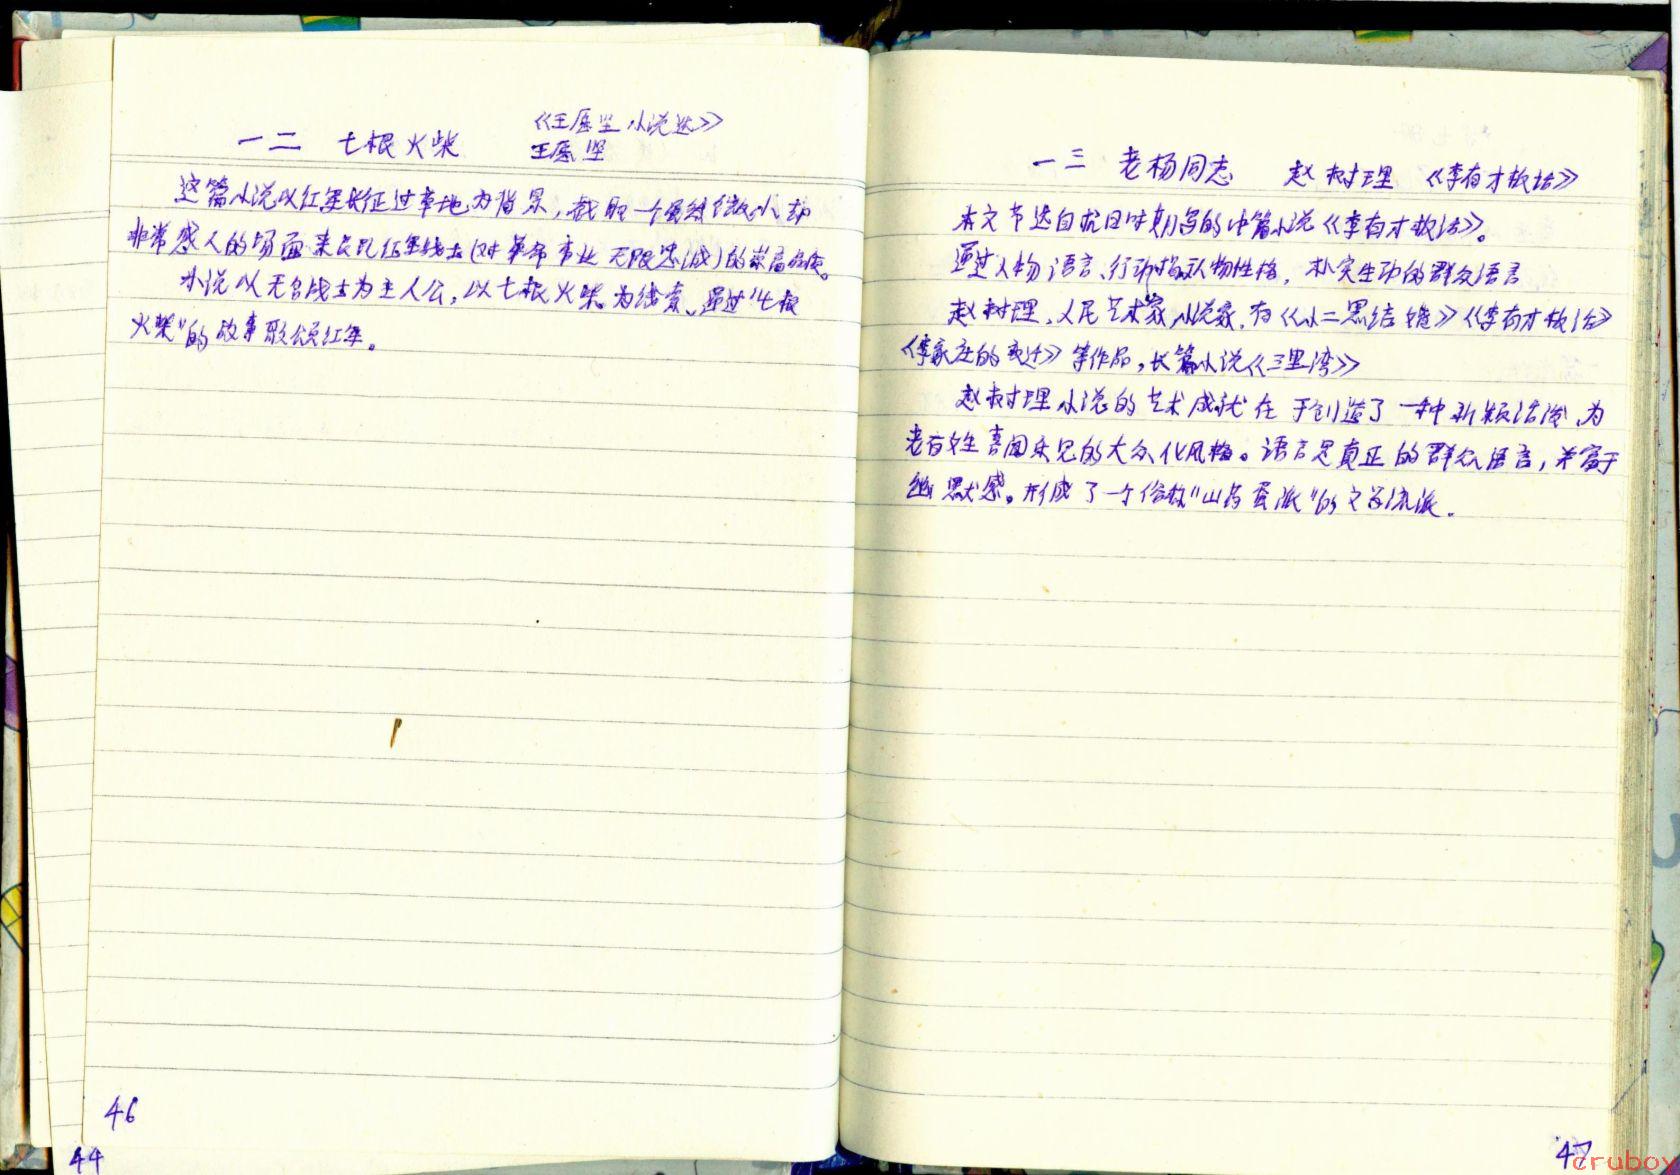 《王愿坚小说选》
一二 七根火柴 王愿坚
这篇小说以红军长征过草地为背景,截取一个虽然微小却
非常感人的场面来表现红军战士(对革命事业无限忠诚)的崇高品质。
小说以无名战士为主人公,以七根火柴为线索、通过"七根
火柴"的故事歌颂红军。
46
44
一三 老杨同志 赵树理 《李有才板话》
本文节选自抗日时期写的中篇小说《李有才板话》。
通过人物语言、行动描写人物性格,朴实生动的群众语言
赵树理,人民艺术家,小说家,有《小二黑结婚》《李有才板话》
《李家庄的变迁》等作品,长篇小说《三里湾》
赵树理小说的艺术成就在于创造了一种新颖活泼、为
老百姓喜闻乐见的大众化风格。语言是真正的群众语言,并富于
幽默感。形成了一个俗称"山药蛋派"的文学流派.
47
cruboy